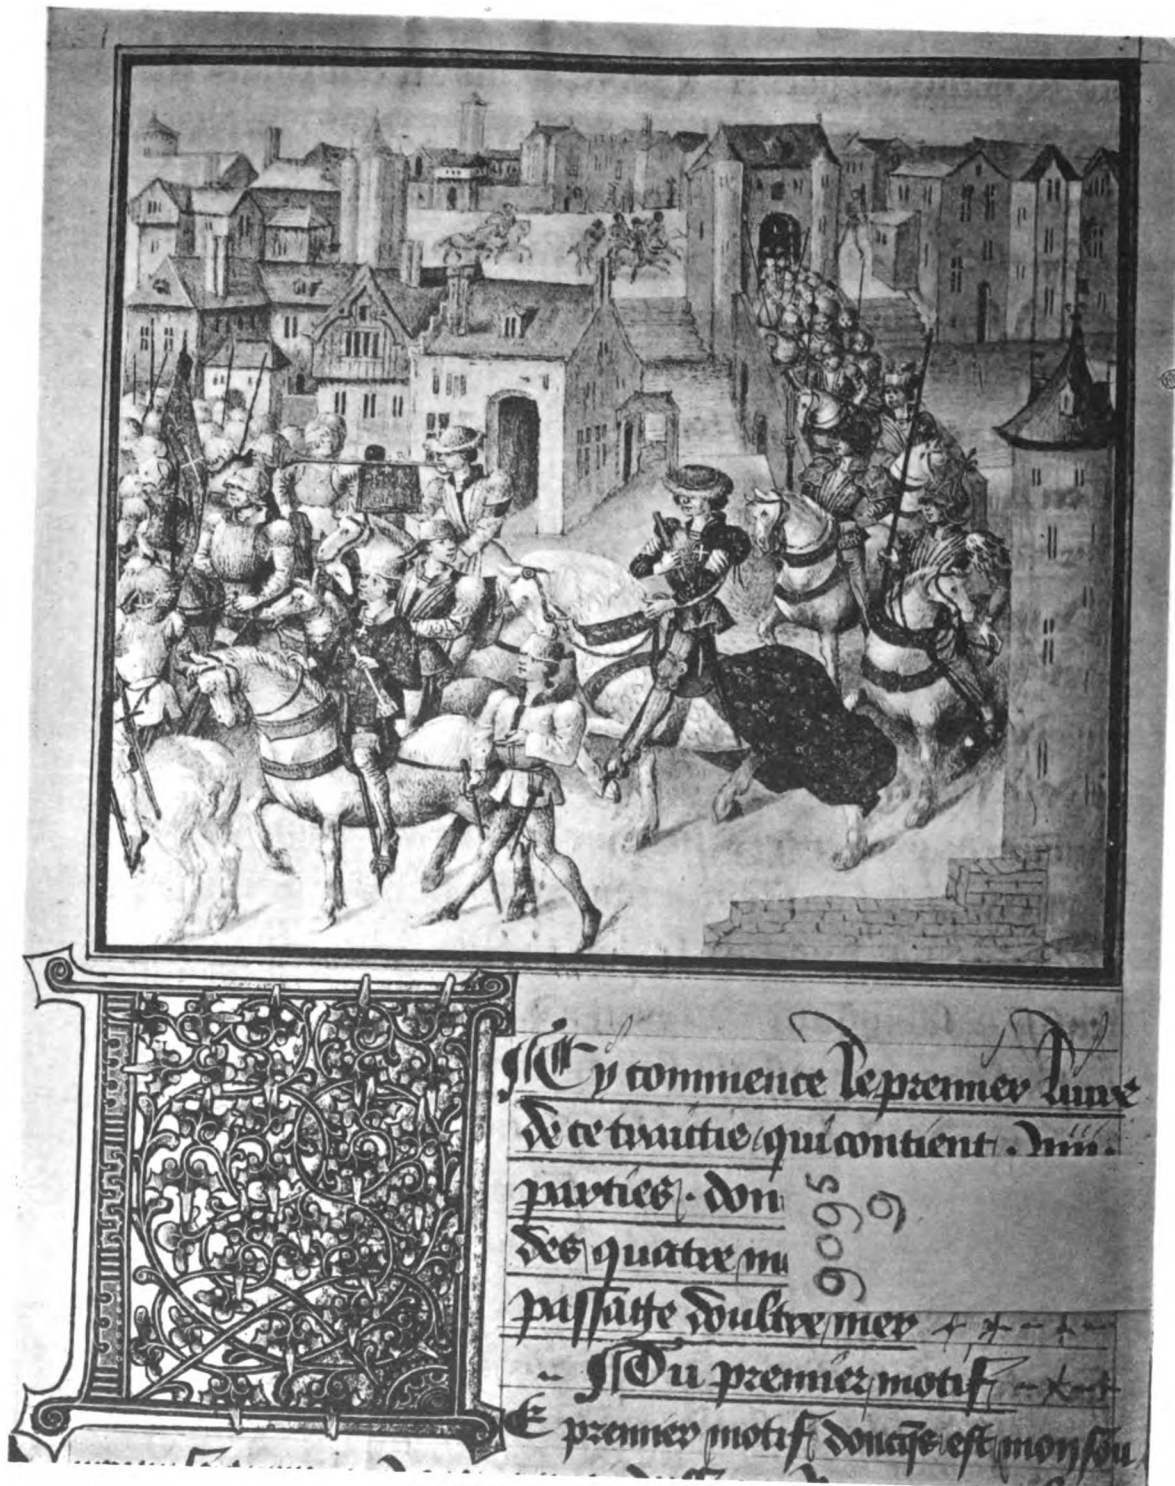 Cy commence le premier liure
de ce traittie qui contient . viii .
parties . don
des quatre m
passaige doultre mer
Du premier motif
E premier motif doncqs est mon sou
9095
9